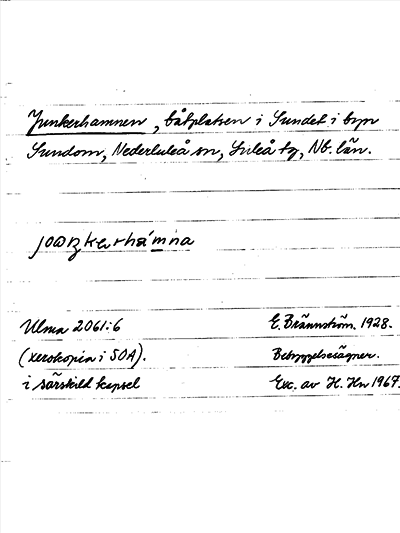 Junkerhamnen, båtplatsen i Sundet i byn
Sundom, Nederluleå sn, Luleå tg, Nb. län.
Ulma 2061:6
E. Brännström. 1928.
(xerokopia i SOA).
Bebyggelsesägner.
i särskild kapsel
Exc. av H. Hn 1967.